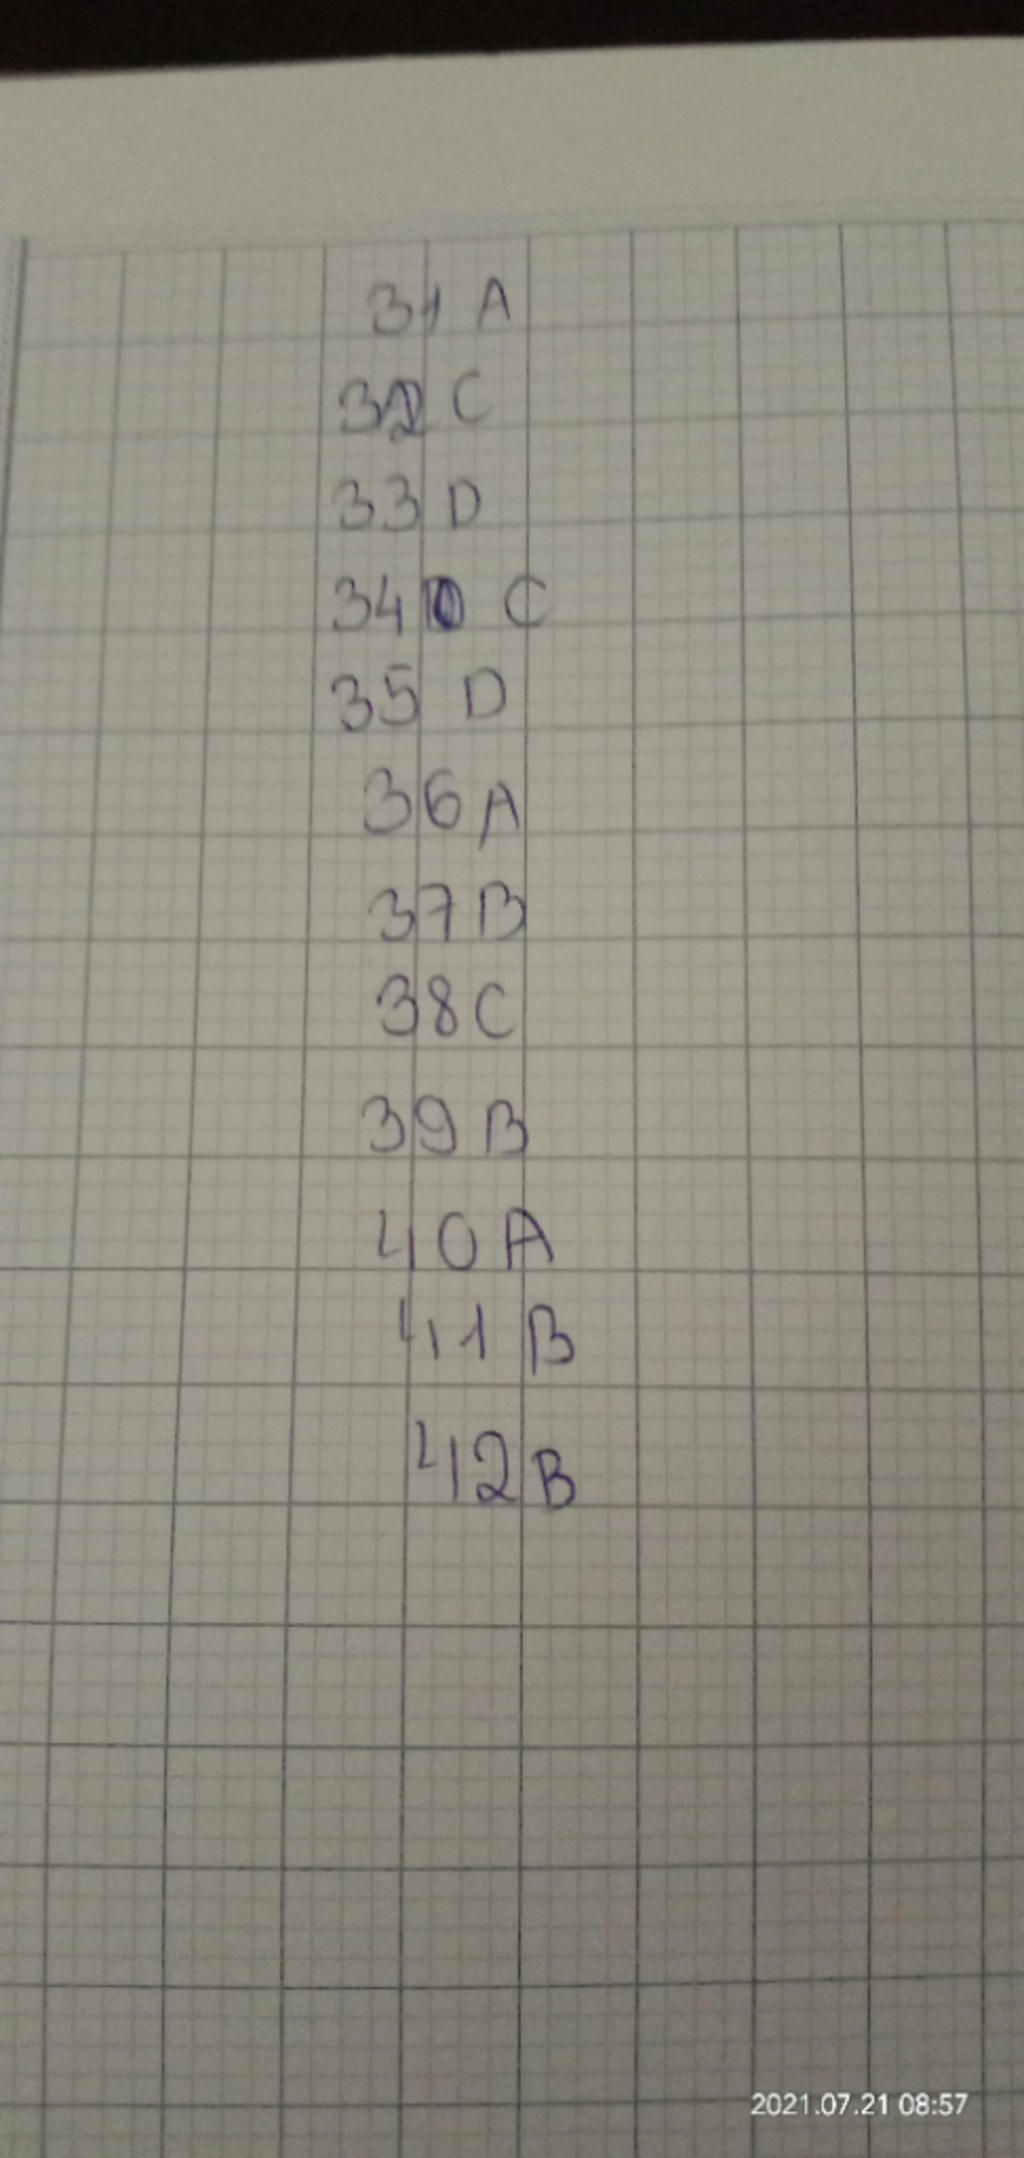 31 A
32 C
33 D
34 C
35 D
36 A
37 B
38 C
39 B
40 A
41 B
42 B
2021.07.21 08:57